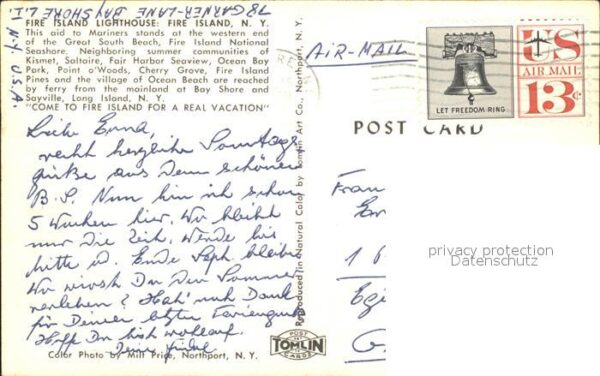 78 GARNER-LANE BAY SHORE L.I.
N.Y. U.S.A.
FIRE ISLAND LIGHTHOUSE: FIRE ISLAND, N. Y.
This aid to Mariners stands at the western end
of the Great South Beach, Fire Island National
Seashore. Neighboring summer communities of
Kismet, Saltaire, Fair Harbor Seaview, Ocean Bay
Park, Point o'Woods, Cherry Grove, Fire Island
Pines and the village of Ocean Beach are reached
by ferry from the mainland at Bay Shore and
Sayville, Long Island, N. Y.
"COME TO FIRE ISLAND FOR A REAL VACATION"
Liebe Erna,
recht herzliche Sonntags
grüße aus dem schönen
B.S. Nun bin ich schon
5 Wochen hier. Wo bleibt
nur die Zeit. Werde bis
Mitte od. Ende Sept. bleiben
Wo wirst Du den Sommer
verleben? Hab' noch Dank
für Deinen letzten
Hoffe Du bist wohlauf.
Deine
Color Photo by Milt Price, Northport, N. Y.
Reproduced in Natural Color by Tomlin Art Co., Northport, N.Y.
POST
TOMLIN
CARDS
AIR-MAIL
LET FREEDOM RING
US
AIR MAIL
13c
POST CARD
Frau
1
privacy protection
Datenschutz